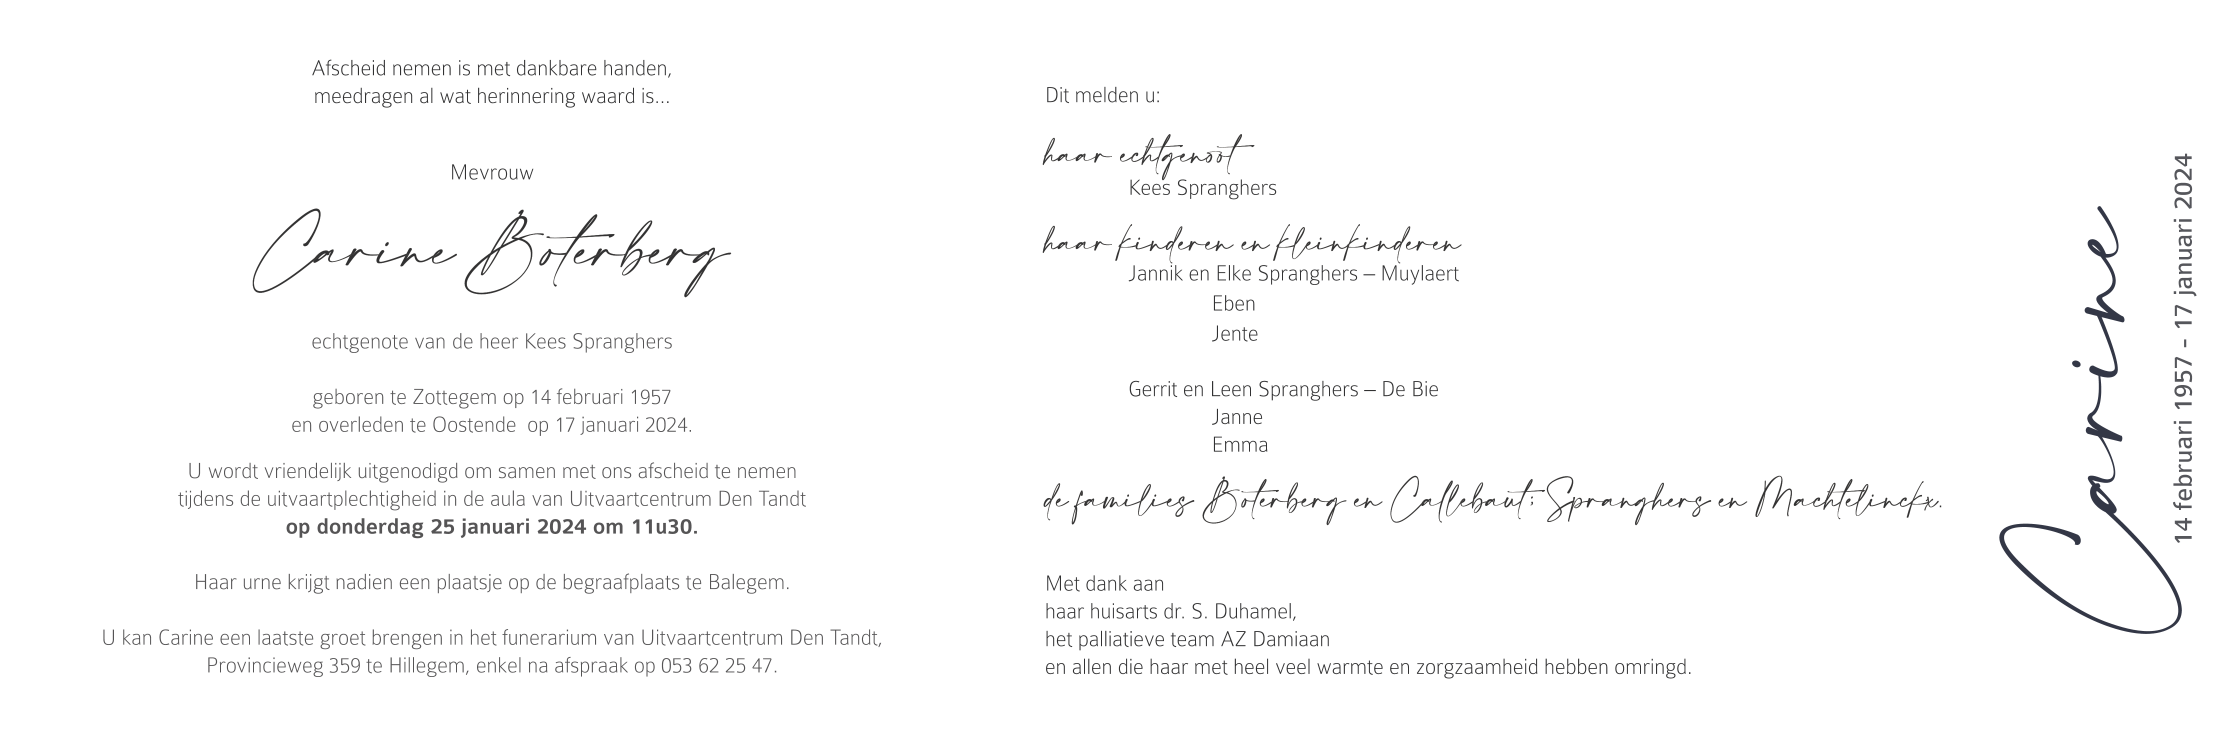 Afscheid nemen is met dankbare handen,
meedragen al wat herinnering waard is...
Mevrouw
Carine Boterberg
echtgenote van de heer Kees Spranghers
geboren te Zottegem op 14 februari 1957
en overleden te Oostende  op 17 januari 2024.
U wordt vriendelijk uitgenodigd om samen met ons afscheid te nemen
tijdens de uitvaartplechtigheid in de aula van Uitvaartcentrum Den Tandt
op donderdag 25 januari 2024 om 11u30.
Haar urne krijgt nadien een plaatsje op de begraafplaats te Balegem.
U kan Carine een laatste groet brengen in het funerarium van Uitvaartcentrum Den Tandt,
Provincieweg 359 te Hillegem, enkel na afspraak op 053 62 25 47.
Dit melden u:
haar echtgenoot
Kees Spranghers
haar kinderen en kleinkinderen
Jannik en Elke Spranghers – Muylaert
Eben
Jente
Gerrit en Leen Spranghers – De Bie
Janne
Emma
de families Boterberg en Callebaut; Spranghers en Machtelinckx.
Met dank aan
haar huisarts dr. S. Duhamel,
het palliatieve team AZ Damiaan
en allen die haar met heel veel warmte en zorgzaamheid hebben omringd.
Carine
14 februari 1957 - 17 januari 2024